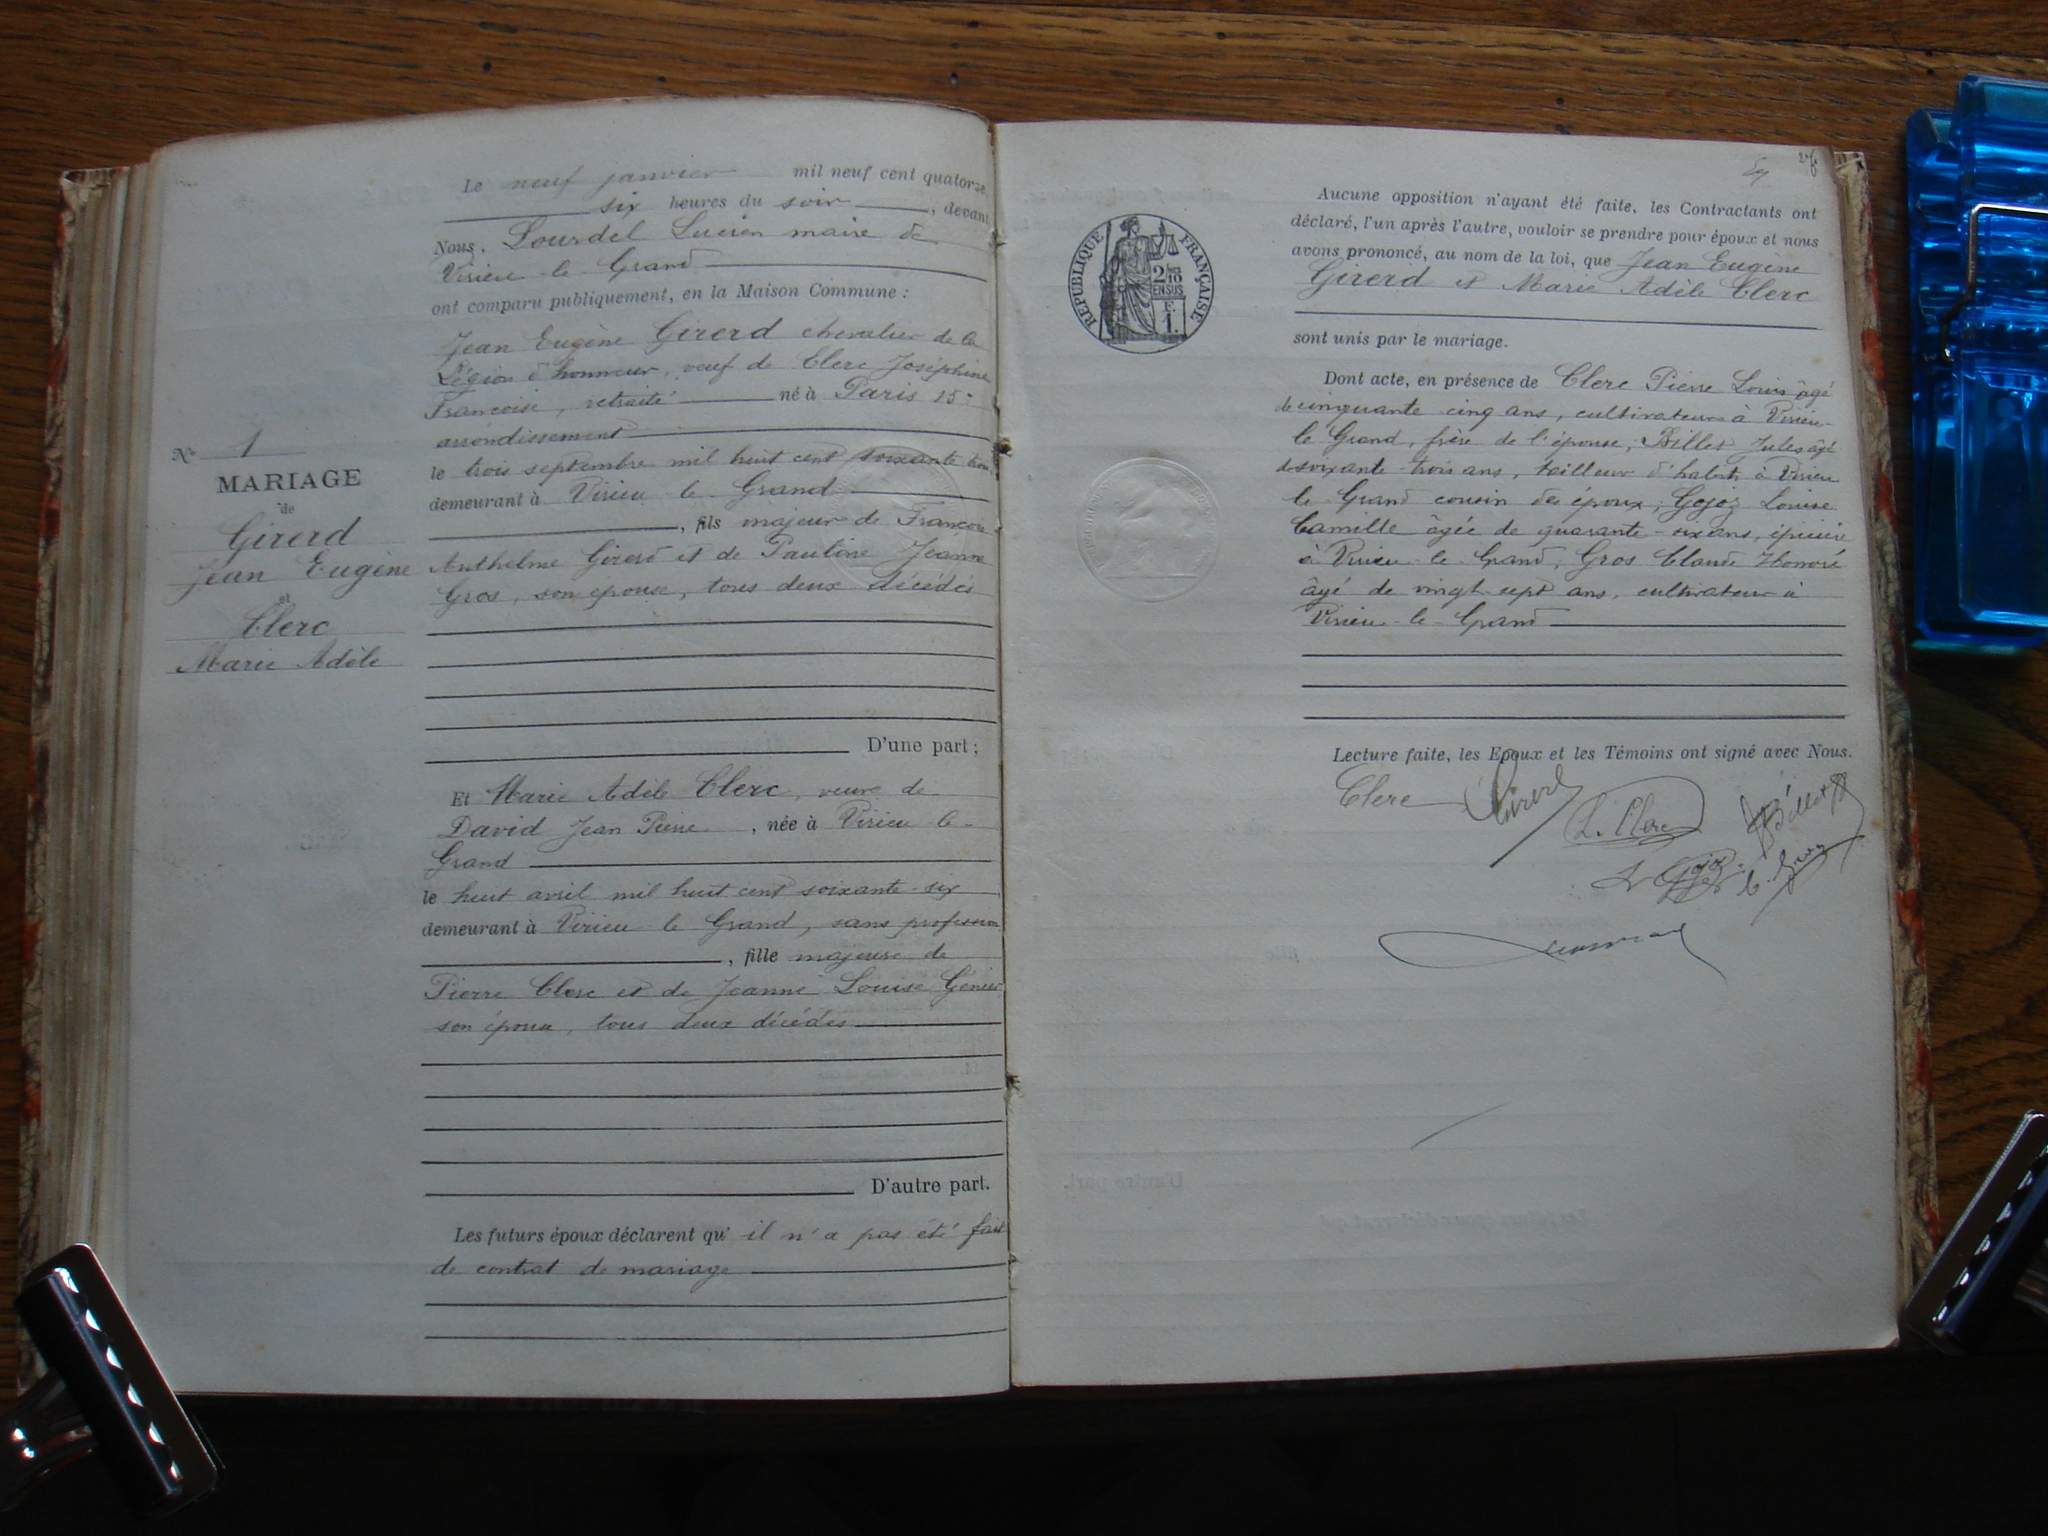 Le neuf janvier mil neuf cent quatorze
six heures du soir, devant
Nous, Lourdel Lucien maire de
Virieu-le-Grand
ont comparu publiquement, en la Maison Commune :
Jean Eugène Girerd chevalier de la
Légion d'honneur, veuf de Clerc Joséphine
Francoise, retraité né à Paris 15e
arrondissement
le trois septembre mil huit cent soixante trois
demeurant à Virieu-le-Grand
, fils majeur de Francois
Anthelme Girerd et de Pauline Jeanne
Gros, son épouse, tous deux décédés
D'une part ;
N° 1
MARIAGE
de
Girerd
Jean Eugène
et
Clerc
Marie Adèle
Et Marie Adèle Clerc, veuve de
David Jean Pierre, née à Virieu-le-
Grand
le huit avril mil huit cent soixante-six
demeurant à Virieu-le-Grand, sans profession
, fille majeure de
Pierre Clerc et de Jeanne Louise
son épouse, tous deux décédés
D'autre part.
Les futurs époux déclarent qu'il n'a pas été fait
de contrat de mariage
RÉPUBLIQUE FRANÇAISE
2/10
EN SUS
F.
1.
Aucune opposition n'ayant été faite, les Contractants ont
déclaré, l'un après l'autre, vouloir se prendre pour époux et nous
avons prononcé, au nom de la loi, que Jean Eugène
Girerd et Marie Adèle Clerc
sont unis par le mariage.
Dont acte, en présence de Clerc Pierre Louis âgé
de cinquante cinq ans, cultivateur à Virieu-
le-Grand, frère de l'épouse; Billet Jules âgé
de soixante-trois ans, tailleur d'habits à Virieu
le-Grand cousin des époux; Gojoz Louise
Camille âgée de quarante-six ans, épicière
à Virieu-le-Grand, Gros Claude Honoré
âgé de vingt-sept ans, cultivateur à
Virieu-le-Grand
Lecture faite, les Epoux et les Témoins ont signé avec Nous.
Clerc Girerd
L. Clerc Billet
L Gojoz C. Gros